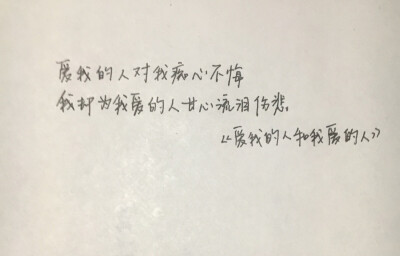 爱我的人对我痴心不悔
我却为我爱的人甘心流泪伤悲。
《爱我的人和我爱的人》